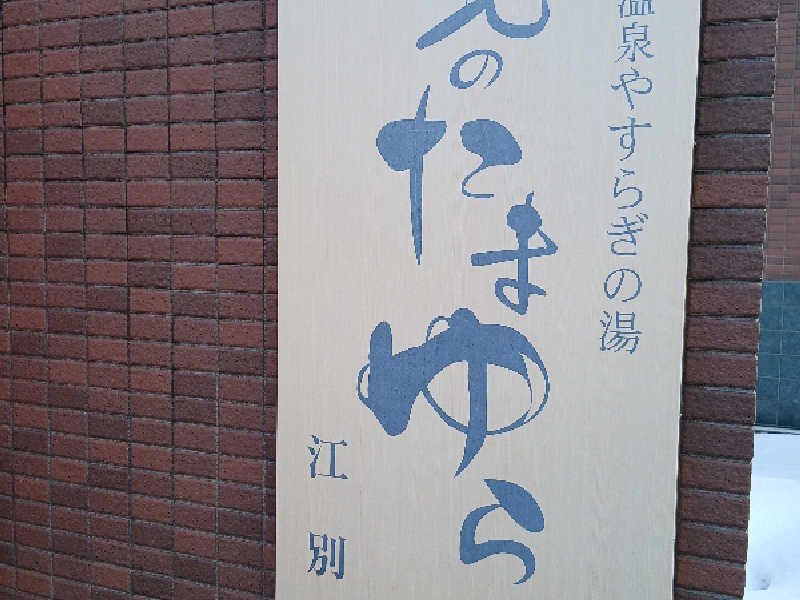 温泉やすらぎの湯
のたまゆら
江別